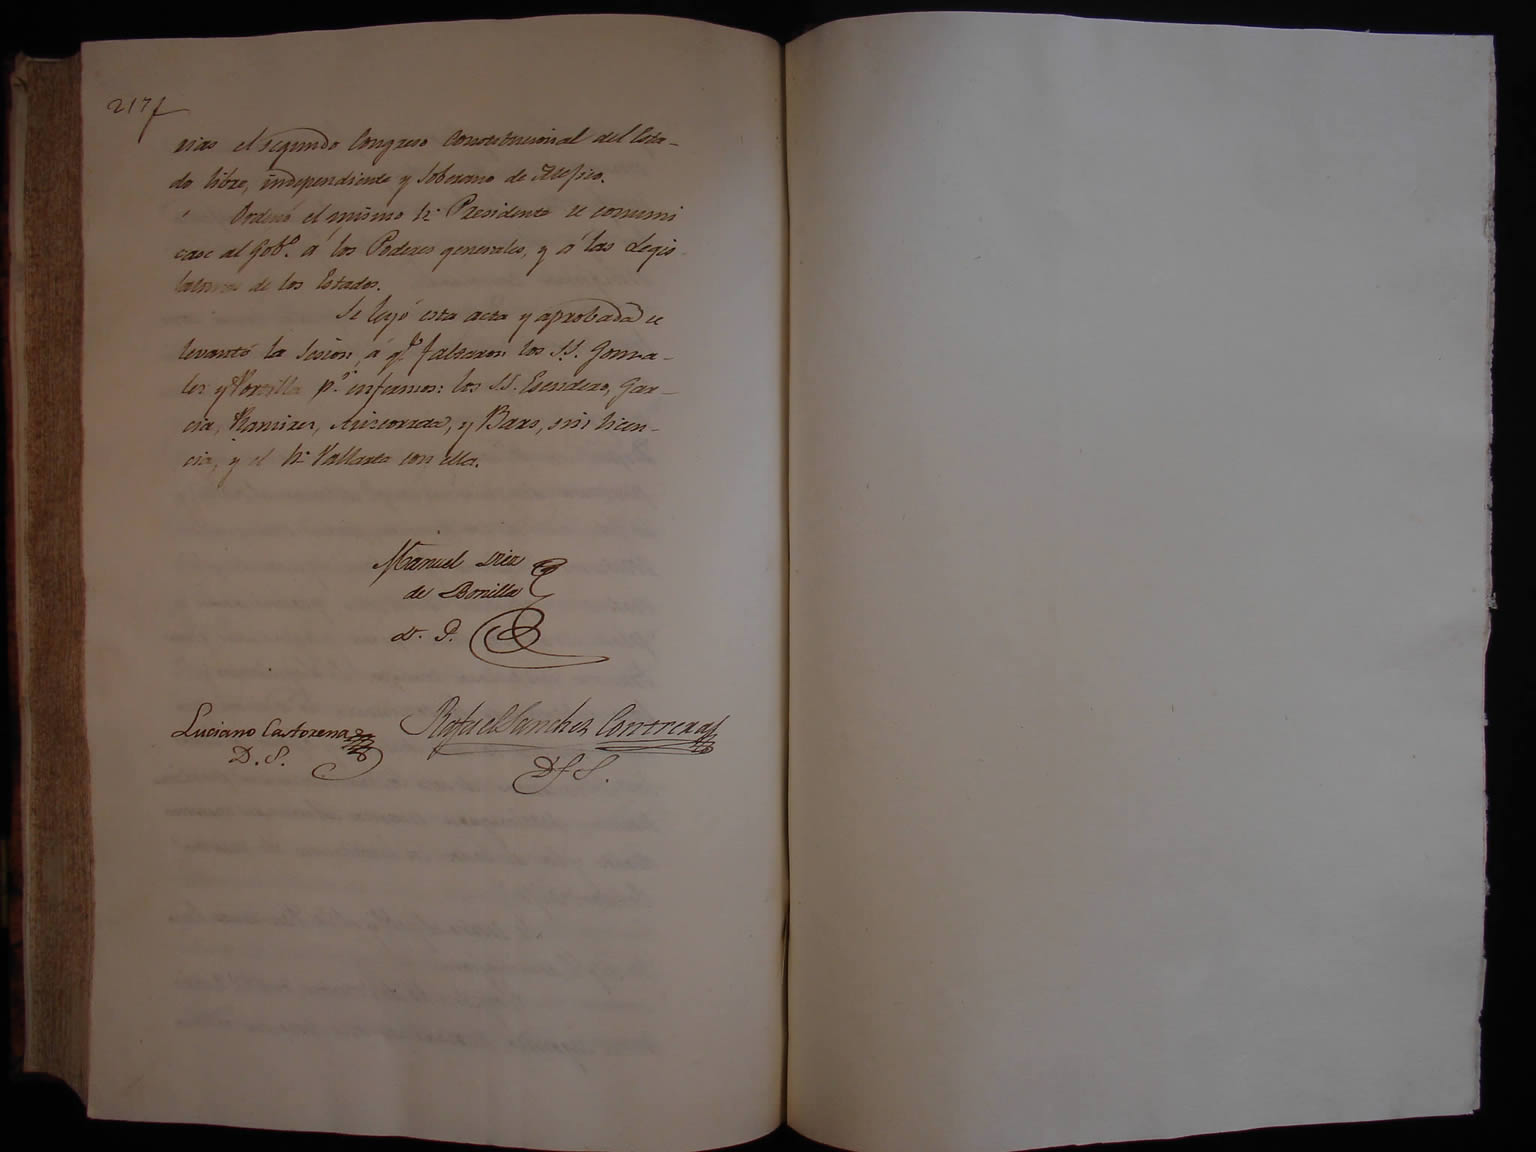 217
rias el segundo Congreso Constitucional del Esta-
do libre, independiente y Soberano de Mejico.
Ordenó el mismo Sr. Presidente se comuni
case al Gobo. á los Poderes generales, y á las Legis-
laturas de los Estados.
Se leyó esta acta y aprobada se
levantó la Sesion, á qe. faltaron los S.S. Gonza-
lez y Portilla pr. enfermos: los SS. Escudero, Gar-
cia, Ramirez, Aniscorreta, y Baro, sin licen-
cia, y el Sr. Vallarta con ella.
Manuel Diez
de Bonilla
D. P.
Luciano Castorena
D. S.
Rafael Sanchez Contreras
D. S.